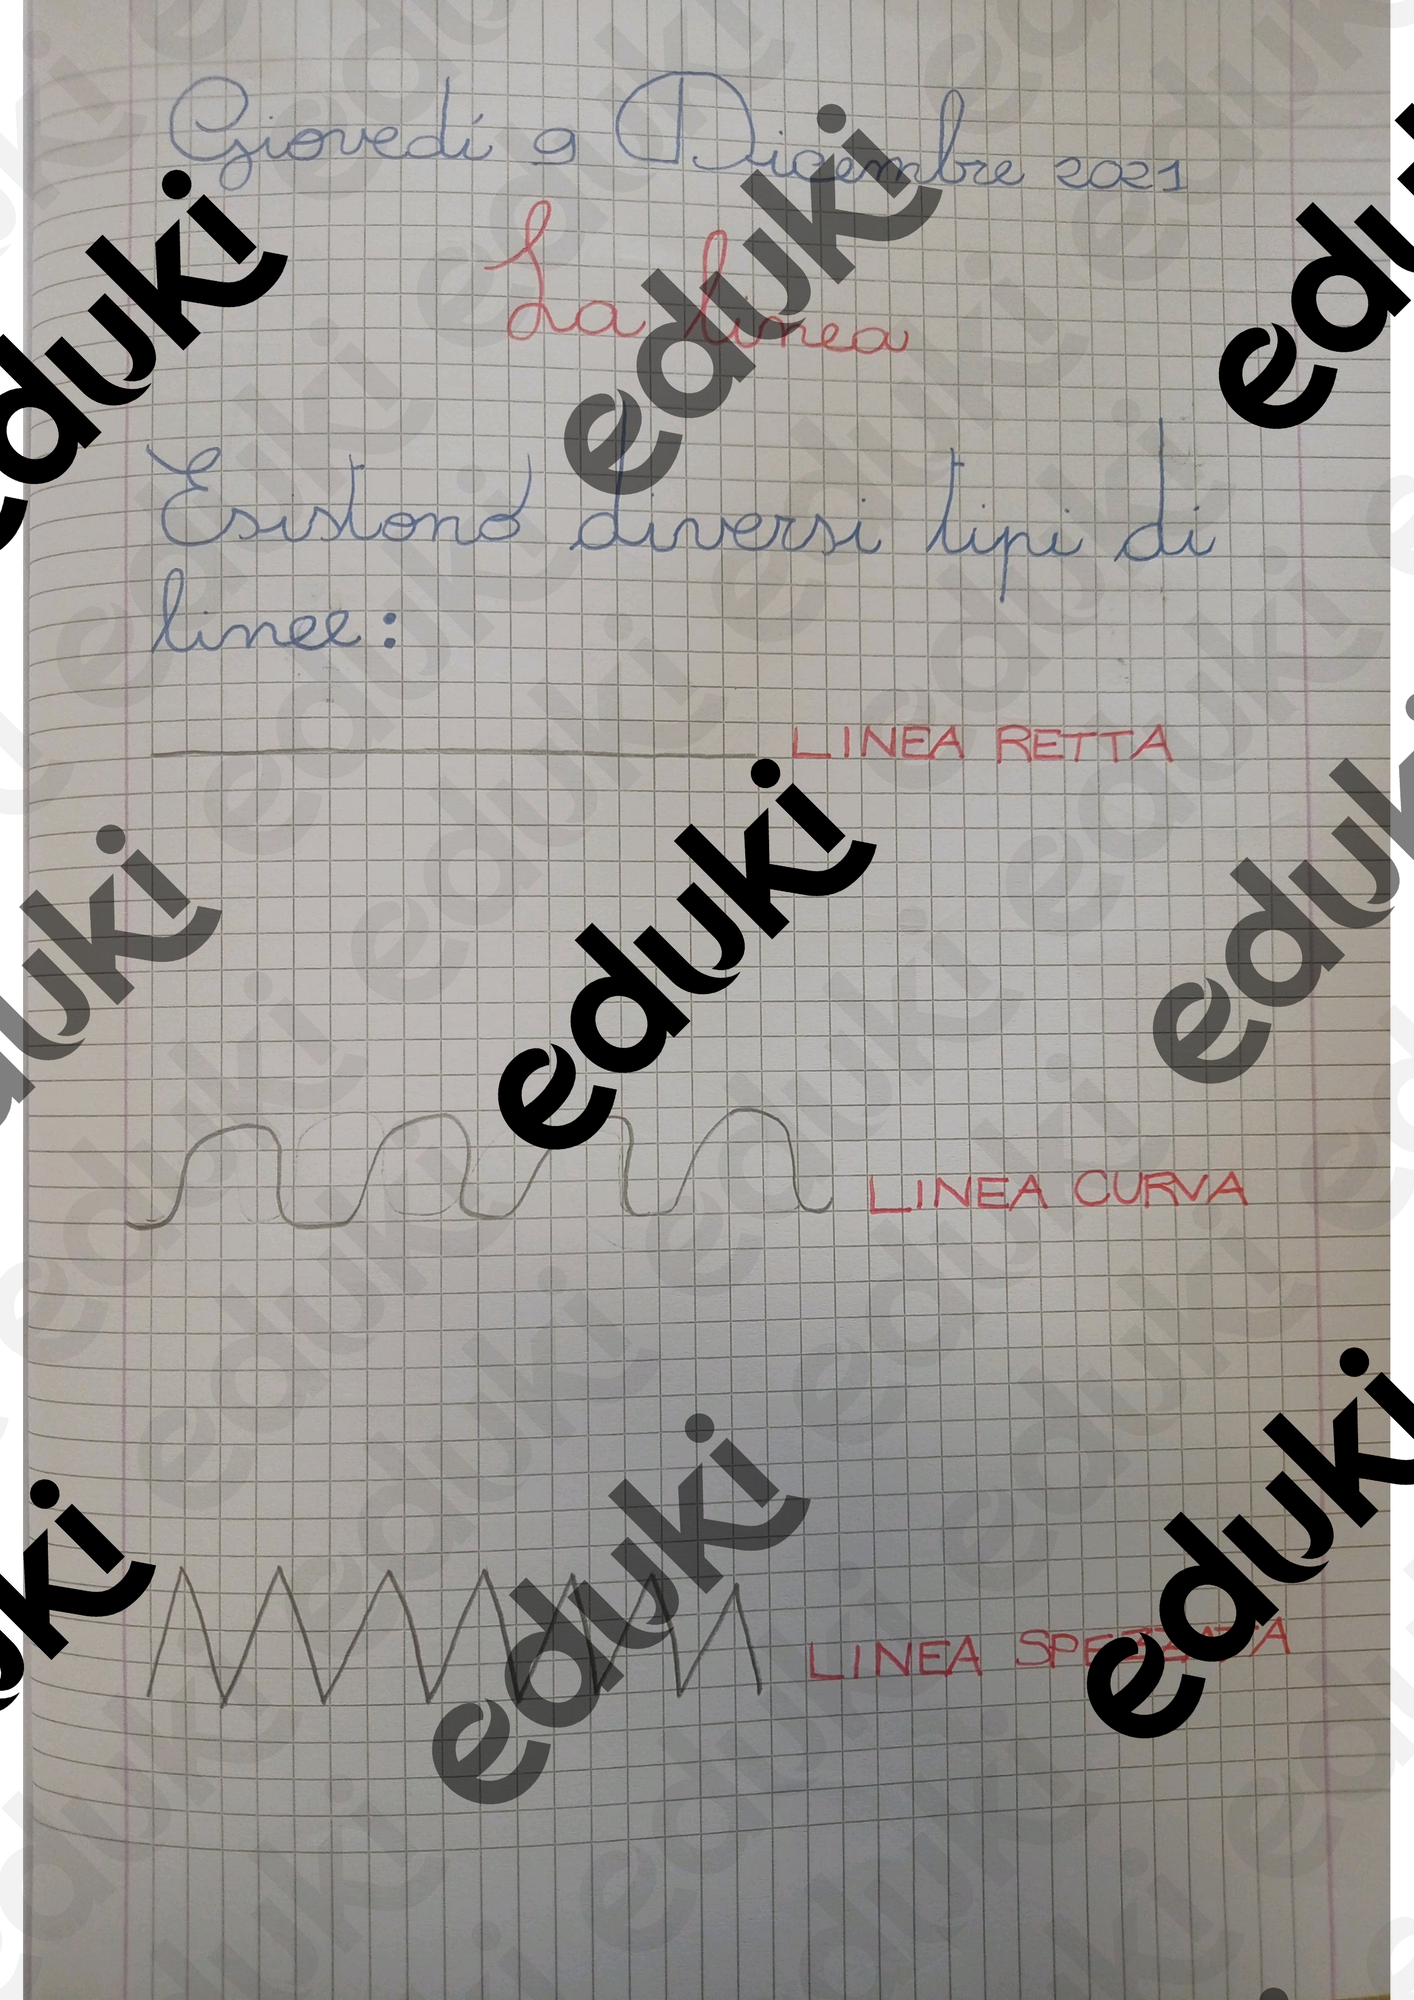 Giovedì 9 Dicembre 2021
La linea
Esistono diversi tipi di
linee:
LINEA RETTA
LINEA CURVA
LINEA SPEZZATA
eduki
eduki
eduki
eduki
eduki
eduki
eduki
eduki
eduki